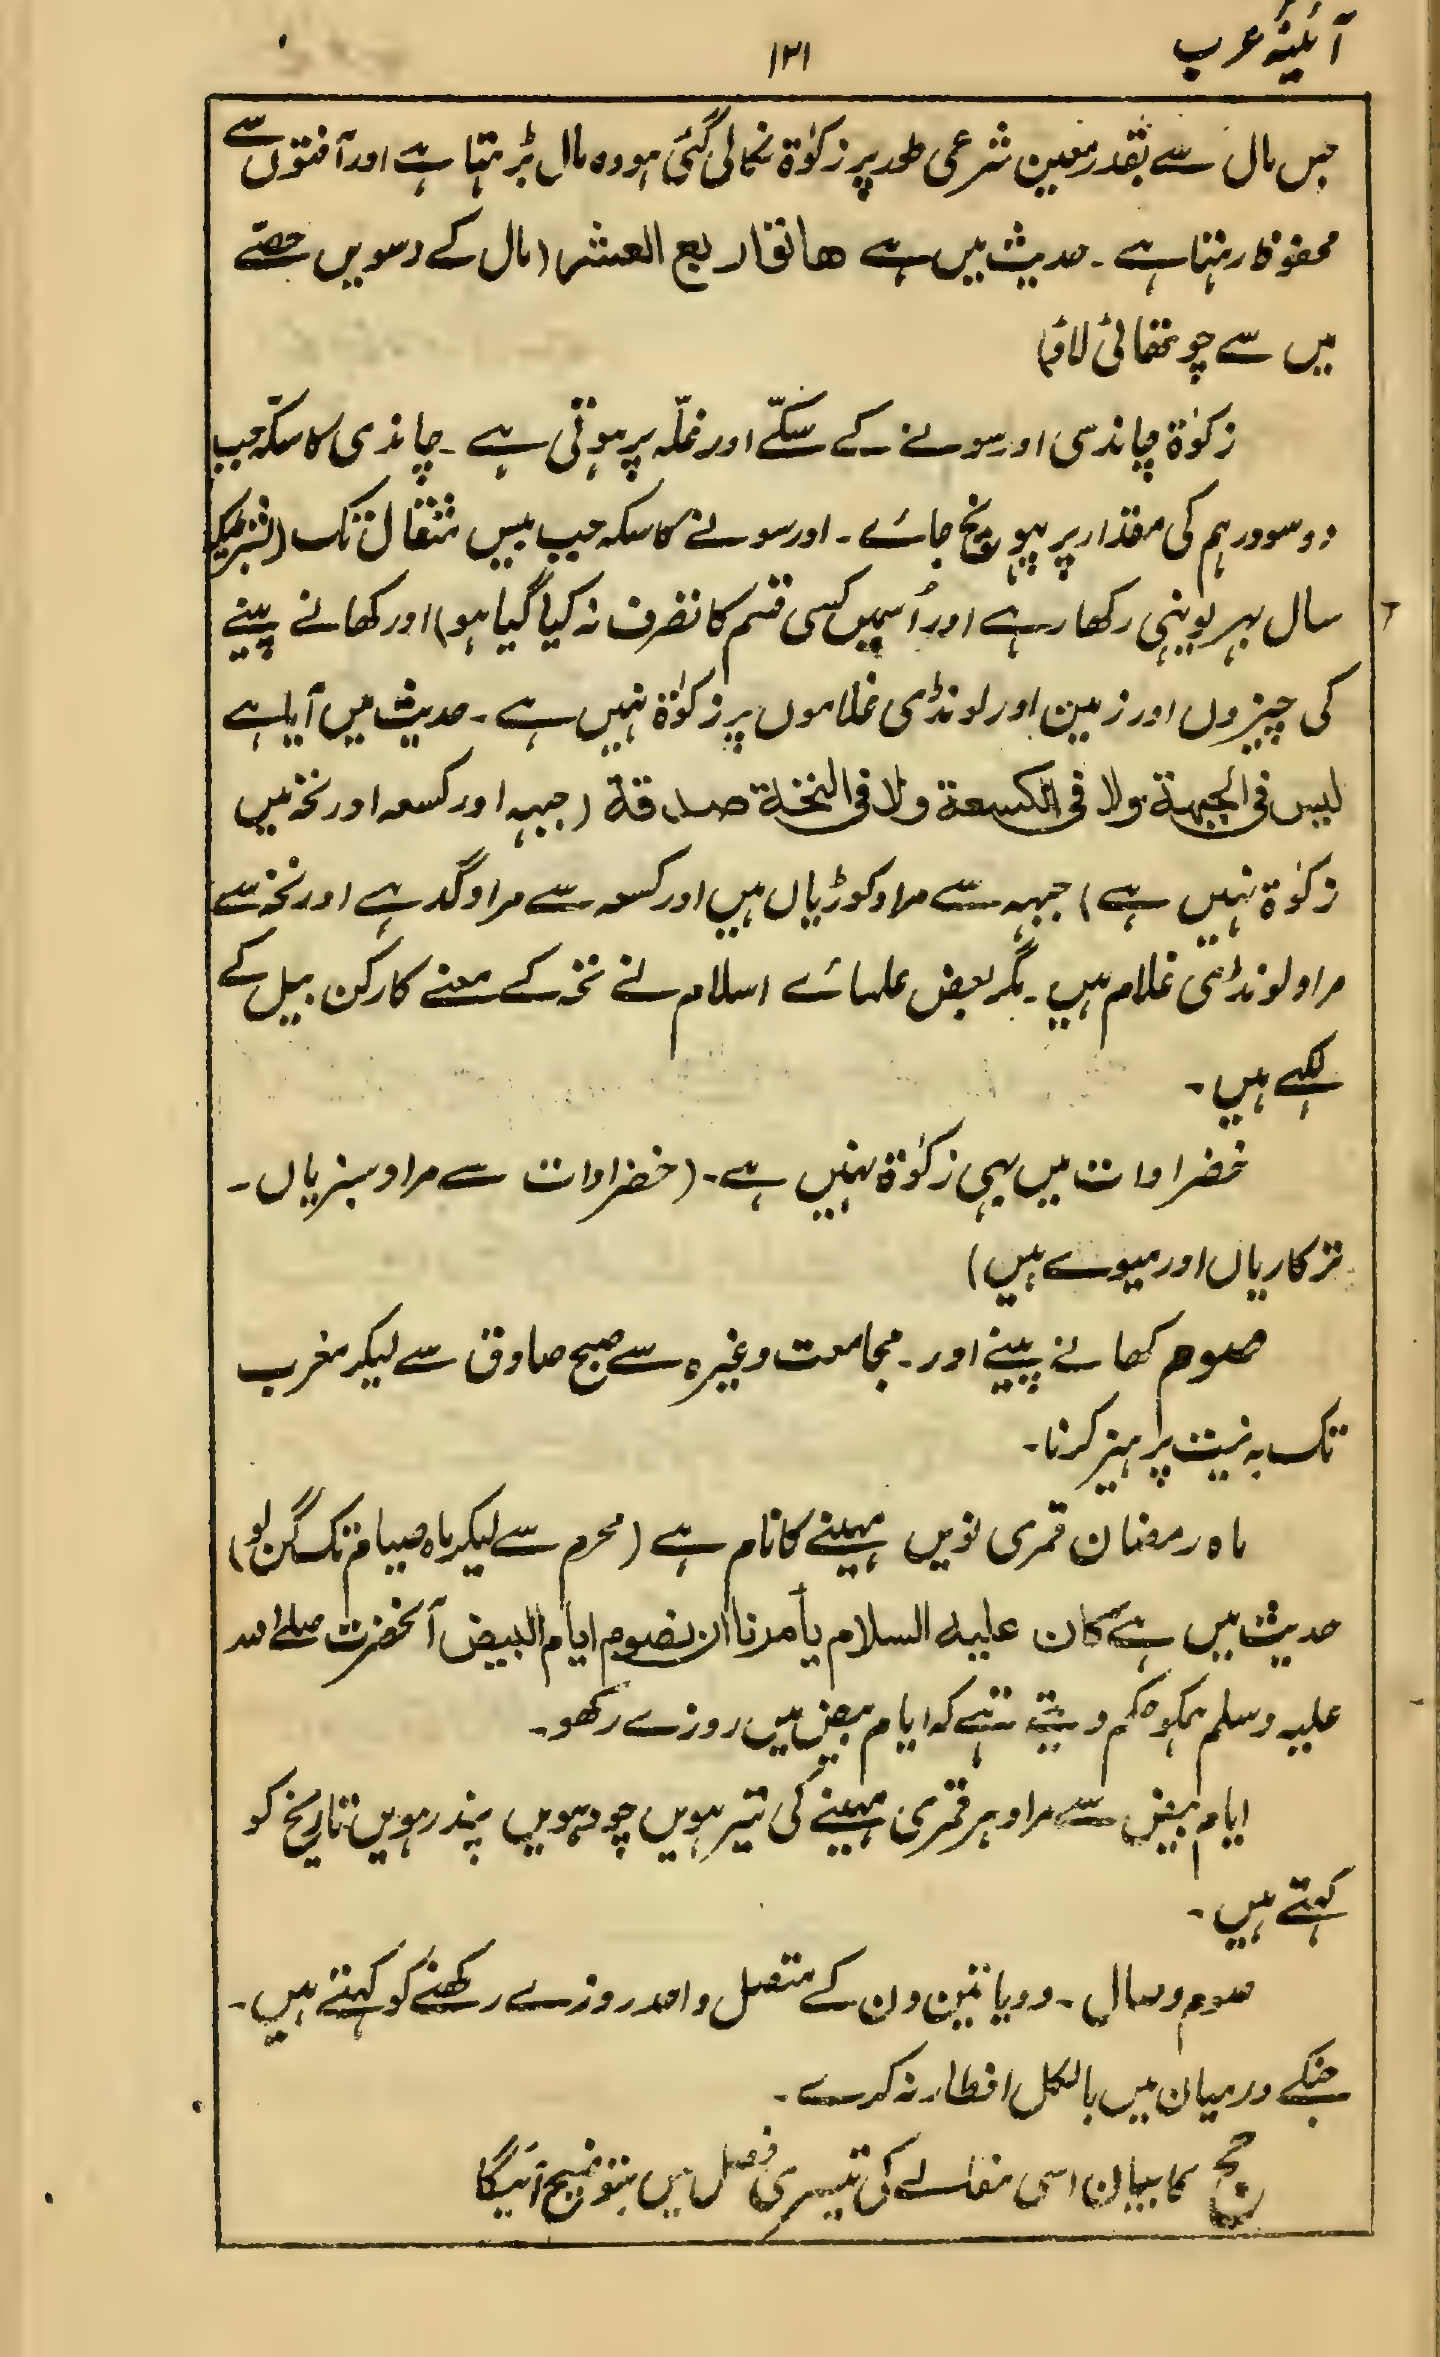 آئینۂ عرب
۱۲۱
جس مال سے بقدر معین شرعی طور پر زکوٰۃ نکالی گئی ہو وہ مال بڑہتا ہے اور آفتوں سے
محفوظ رہتا ہے ۔ حدیث میں ہے هاتوا ربع العشر (مال کے دسویں حصّے
میں سے چوتھائی لاؤ)
زکوٰۃ چاندی اور سونے کے سکّے اور غلّہ پر ہوتی ہے ۔ چاندی کا سکّہ جب
دو سو درہم کی مقدار پر پہونچ جائے ۔ اور سونے کا سکہ جب بیس مثقال تک (بشرطیکہ
سال بہر یونہی رکھا رہے اور اُسمیں کسی قسم کا تصرف نہ کیا گیا ہو) اور کھانے پینے
کی چیزوں اور زمین اور لونڈی غلاموں پر زکوٰۃ نہیں ہے ۔ حدیث میں آیا ہے
لیس فی الجبهة ولا فی الکسعة ولا فی النخة صدقة (جبہہ اور کسعہ اور نخہ میں
زکوٰۃ نہیں ہے) جبہہ سے مراد کوڑیاں ہیں اور کسعہ سے مراد گدہے اور نخہ سے
مراد لونڈی غلام ہیں ۔ مگر بعض علمائے اسلام نے نخہ کے معنے کارکن بیل کے
لکہے ہیں ۔
خضراوات میں بہی زکوٰۃ نہیں ہے ۔ (خضراوات سے مراد سبزیاں ۔
ترکاریاں اور میوے ہیں)
صوم کھانے پینے اور ۔ مجامعت وغیرہ سے صبح صادق سے لیکر مغرب
تک بہ نیت پرہیز کرنا ۔
ماہ رمضان قمری نویں مہینے کا نام ہے (محرم سے لیکر ماہ صیام تک گن لو)
حدیث میں ہے کان علیه السلام یأمرنا ان نصوم ایام البیض آنحضرت صلے اللہ
علیہ وسلم ہمکو حکم دیتے تہے کہ ایام بیض میں روزے رکھو ۔
ایام بیض سے مراد ہر قمری مہینے کی تیرہویں چودہویں پندرہویں تاریخ کو
کہتے ہیں ۔
صوم وصال ۔ دو یا تین دن کے متصل واحد روزے رکھنے کو کہتے ہیں ۔
جنکے درمیان میں بالکل افطار نہ کرے ۔
حج کا بیان اسی مقالے کی تیسری فصل میں بتوضیح آئیگا